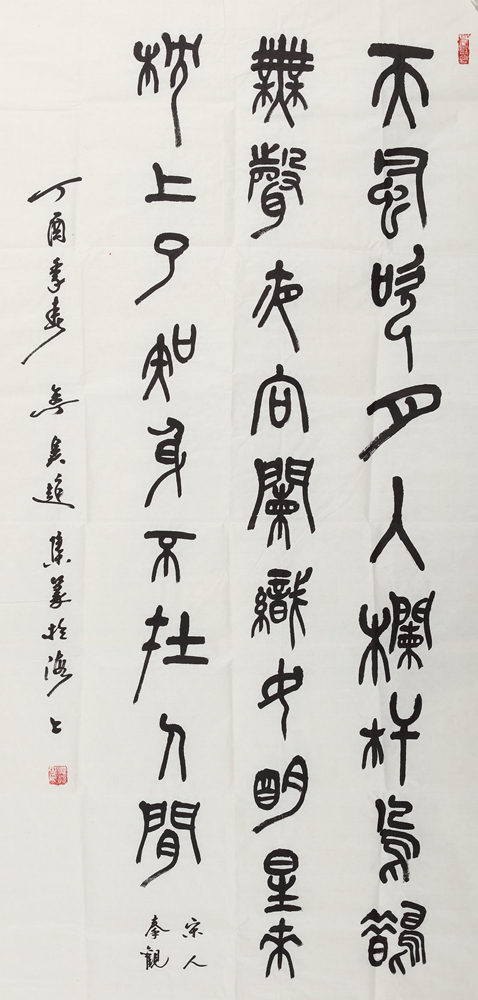 天風吹月入欄杆烏鵲
無聲夜向闌織女明星來
枕上了知身不在人間
宋人
秦觀
丁酉季春 集篆於海上